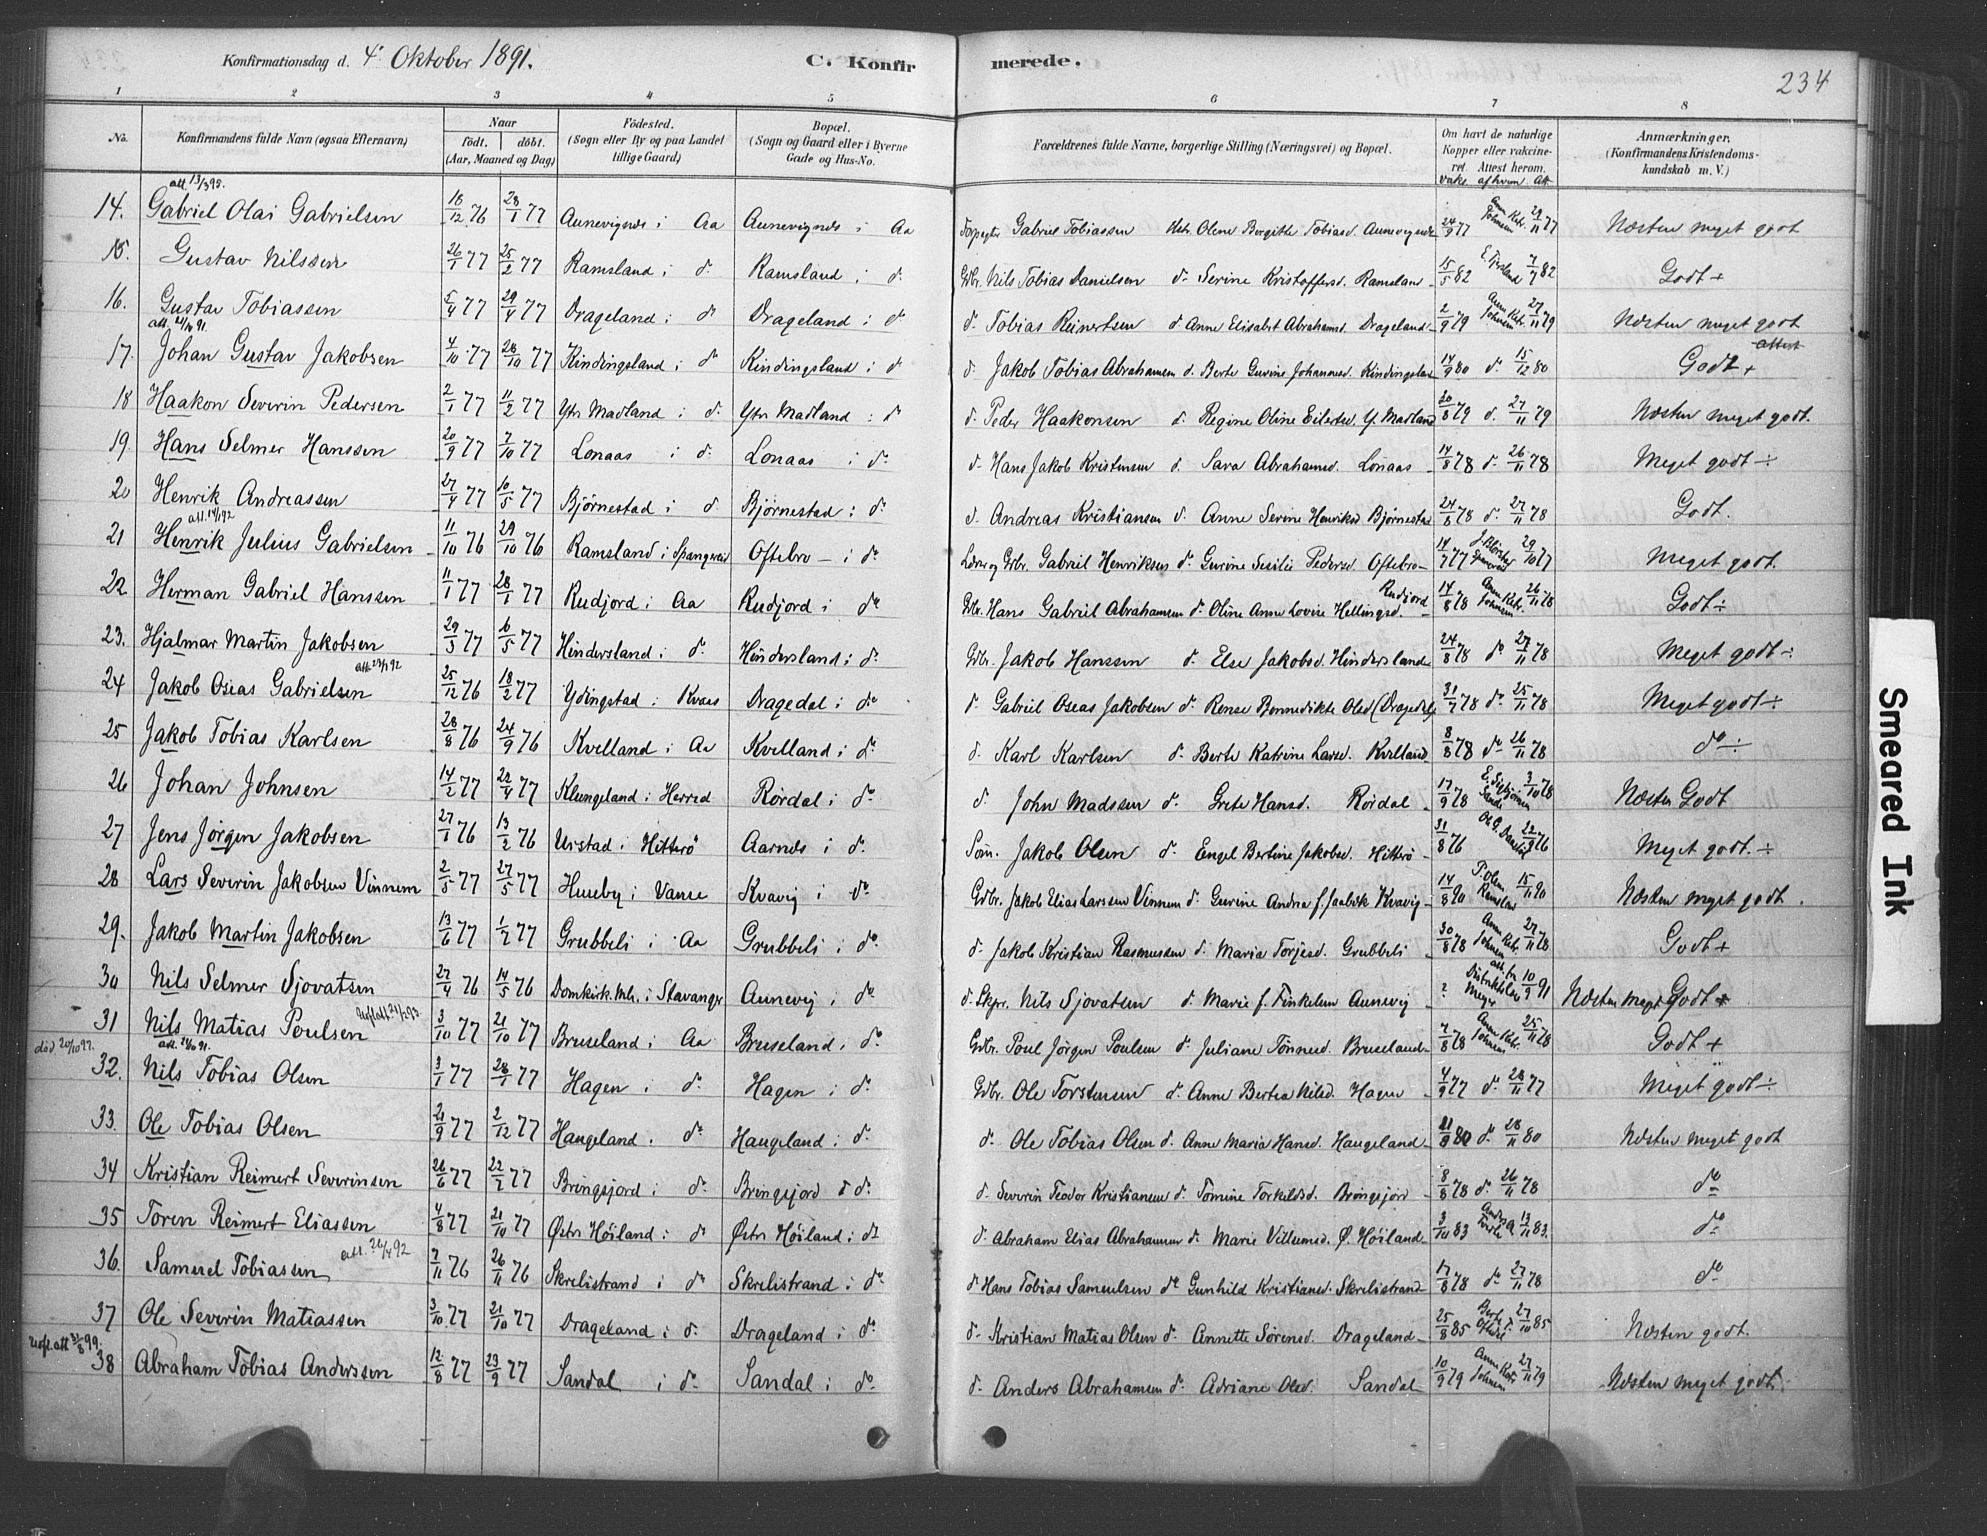 Konfirmationsdag d. 4' Oktober 1891. C. Konfirmerede. 234
1 2 3 4 5 6 7 8
No. Konfirmandens fulde Navn (ogsaa Efternavn) Naar födt. döbt. (Aar, Maaned og Dag) Födested. (Sogn eller By og paa Landet tillige Gaard) Bopæl. (Sogn og Gaard eller i Byerne Gade og Hus-No. Forældrenes fulde Navne, borgerlige Stilling (Næringsvei) og Bopæl. Om havt de naturlige Kopper eller vakcineret. Attest herom. vaks. af hvem. Att. Anmærkninger, (Konfirmandens Kristendomskundskab m. V.)
14. Gabriel Olai Gabrielsen 18/12 76 28/1 77 Aunevignds i Aa Aunevignds i Aa Gabriel Tobiassen Olene Bergitte Tobiasd. Aunevignds 24/9 77 29/11 77 Næsten meget godt
15. Gustav Nilssen 26/1 77 25/2 77 Ramsland i d. Ramsland i d. Gdbr. Nils Tobias Danielsen d. Serine Kristoffersd. Ramsland 15/5 82 7/7 82 Godt +
16. Gustav Tobiassen 5/4 77 29/4 77 Drageland i d. Drageland i d. d. Tobias Reinertsen d. Anne Elisabet Abrahamsd. Drageland 2/9 79 Ann Katr. Johnsen 27/11 79 Næsten meget godt
17. Johan Gustav Jakobsen 4/10 77 28/10 77 Kindingsland i d. Kindingsland i d. d. Jakob Tobias Abrahamsen d. Berte Gurine Johannesd. Kindingsland 14/9 80 d. 15/12 80 Godt + attest
18 Haakon Severin Pedersen 2/1 77 11/2 77 Ytr. Madland i d. Ytr. Madland i d. d. Peder Haakonsen d. Regine Oline Eilertsd. Y. Madland 20/8 79 d. 27/11 79 Næsten meget godt.
19. Hans Selmer Hanssen 20/9 77 7/10 77 Lonaas i d. Lonaas i d. d. Hans Jakob Kristensen d. Sara Abrahamsd. Lonaas 14/8 78 d. 26/11 78 Meget godt ÷
20 Henrik Andreassen 27/4 77 10/5 77 Bjørnestad i d. Bjørnestad i d. d. Andreas Kristiansen d. Anne Serine Henriksd Bjørnestad 24/8 78 d. 27/11 78 Godt.
21 Henrik Julius Gabrielsen 11/10 76 29/10 76 Ramsland i Spangereid Oftebro i d. Gabriel Henriksen d. Gurine Sesilie Pedersd. Oftebro 14/7 77 29/10 77 Meget godt.
22 Herman Gabriel Hanssen 11/1 77 28/1 77 Rudjord i Aa Rudjord i d. Gdbr. Hans Gabriel Abrahamsen d. Oline Anne Lovise Hellingsd. Rudjord 14/8 78 Ann Katr. Johnsen 26/11 78 Godt ÷
23. Hjalmar Martin Jakobsen 29/3 77 6/5 77 Hindersland i d. Hindersland i d. Gdbr. Jakob Hanssen d. Else Jakobsd. Hindersland 24/8 78 d. 27/11 78 Meget godt ÷
24 Jakob Oseas Gabrielsen 25/12 76 18/2 77 Ydingstad i Kvaas Dragedal i d. d. Gabriel Oseas Jakobsen d. Rense Bennedikte Olsd (Dragedal) 31/7 78 d. 25/11 78 Meget godt ÷
25 Jakob Tobias Karlsen 28/8 76 24/9 76 Kvelland i Aa Kvelland i d. d. Karl Karlsen d. Berte Katrine Larsd. Kvelland 8/8 78 d. 26/11 78 d. ÷
26 Johan Johnsen 14/2 77 22/4 77 Klungeland i Herred Rørdal i d. d. John Madssen d. Grete Hansd. Rørdal 17/9 78 3/10 78 Næsten Godt
27 Jens Jørgen Jakobsen 27/1 76 13/2 76 Urstad i Hitterö Aarnes i d. Søm. Jakob Olsen d. Engel Bertine Jakobsd. Hitterö 31/8 76 22/9 76 Meget godt. ÷
28 Lars Severin Jakobsen Vinnem 2/5 77 27/5 77 Huseby i Vanse Kvavig i d. Gdbr. Jakob Elias Larssen Vinnem d. Gurine Andrea f. Jaabæk Kvavig 14/8 90 T. Olsen Ramsland 15/11 90 Næsten meget godt.
29. Jakob Martin Jakobsen 13/6 77 1/7 77 Grubbeli i Aa Grubbeli i d. d. Jakob Kristian Rasmussen d. Maria Torjesd. Grubbeli 30/8 78 Ann Katr. Johnsen 27/11 78 Godt +
30 Nils Selmer Sjovatsen 27/4 76 14/5 76 Domkirk. Mh. i Stavanger Aunevig i d. d. Skpr. Nils Sjovatsen d. Marie f. Finkelsen Aunevig ? att. fr. Distriktslæ Meyer 10/9 91 Næsten meget Godt
31 Nils Matias Poulsen 3/10 77 21/10 77 Bruseland i Aa Bruseland i d. Gdbr. Poul Jörgen Poulsen d. Juliane Tönnesd. Bruseland 7/8 78 Ann Katr. Johnsen 25/11 78 Godt +
död 20/10 97. 32. Nils Tobias Olsen 3/1 77 28/1 77 Hagen i d. Hagen i d. Gdbr. Ole Torstensen d. Anne Bertea Nilsd. Hagen 4/9 77 d. 28/11 77 Meget godt ÷
33. Ole Tobias Olsen 21/9 77 2/12 77 Haugeland i d. Haugeland i d. d. Ole Tobias Olsen d. Anne Maria Hansd. Haugeland 21/8 80 d. 28/11 80 Næsten meget godt
34 Kristian Reimert Severinsen 26/6 77 22/7 77 Bringsjord i d. Bringsjord i d. d. Severin Teodor Kristiansen d. Tomine Torkildsd. Bringsjord 8/8 78 d. 26/11 78 d.
35 Toren Reimert Eliassen 4/8 77 21/10 77 Østr. Höiland i d. Østr. Höiland i d. d. Abraham Elias Abrahamsen d. Marie Villumsd. Ø. Höiland 3/10 83 13/11 83. d.
36. Samuel Tobiassen att. 26/4 92 7/11 76 26/11 76 Skrelistrand i d. Skrelistrand i d. d. Hans Tobias Samuelsen d. Gunhild Kristiansd. Skrelistrand 17/8 78 d. 27/11 78 d.
37 Ole Severin Matiassen 3/10 77 21/10 77 Drageland i d. Drageland i d. d. Kristian Matias Olsen d. Annette Sörensd. Drageland 25/8 85 27/10 85 Næsten godt.
38 Abraham Tobias Anderssen 12/8 77 23/9 77 Sandal i d. Sandal i d. d. Anders Abrahamsen d. Adriane Olsd. Sandal 10/9 79 Ann Katr. Johnsen 27/11 79 Næsten meget godt.
Smeared Ink